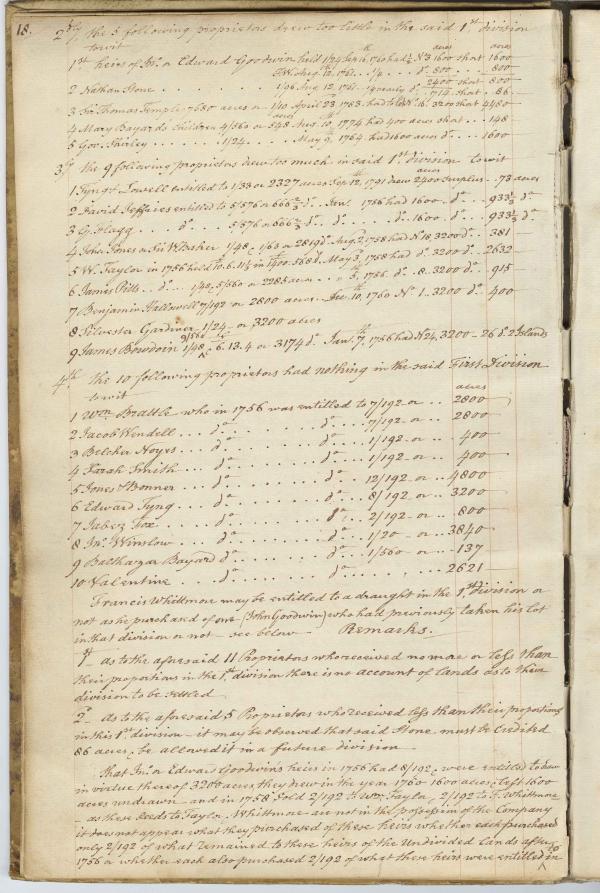 18.
2.dly the 5 following proprietors drew too little in the said 1.st division
towit
acres acres
1st heirs of Jn. or Edward Goodwin held 1/24 Sep. 16th, 1760 had 1/2 No 3 1600 short 1600
800 800
2 Nathan Stone 1/96 Aug. 12, 1761 2400 short 800
714 short 86
3 Sir Thomas Temple 7680 acres or 1/10 April 23 1763 had 16. 3200 short 4480
4 Mary Bayards Children 4/560 or 548 Aug. 10, 1774 had 400 acres short 148
5 Gov. Shirley 1/24 May 9th, 1764 had 1600 acres do 1600
3.d the 9 following proprietors drew too much in said 1st division towit
1 Tyng & Lowell entitled to 1/33 or 2327 acres Sep. 12th, 1791 drew 2400 surplus 73 acres
2 David Jeffries entitled to 5/576 or 666 2/3 do Jan. 1758 had 1600 do 933 1/3 do
3 G. Flagg do 5/576 or 666 2/3 do do do 1600 do 933 1/3 do
4 John Jones or Sir W. Baker 1/48, 1/63 or 2819 do Aug. 2, 1758 had No 18, 3200 do 381
5 W. Taylor in 1756 held 10.6.11 1/2 in 1400. 568 do May 3, 1758 had do 3200 do 2632
6 James Pitts do 1/40, 5/560 or 2285 acres 5, 1756 do 8 3200 do 915
7 Benjamin Hallowell 7/192 or 2800 acres Dec. 10, 1760 No 1 3200 do 400
8 Silvester Gardiner 1/24 or 3200 acres
9 James Bowdoin 1/48, 6.13.4 or 3174 do Jan. 7th, 1756 had No 24, 3200 26 do 2 Islands
4.th the 10 following proprietors had nothing in the said First Division
towit
acres
1 Wm Brattle who in 1756 was entitled to 7/192 or 2800
2 Jacob Wendell do do 7/192 or 2800
3 Belcher Noyes do do 1/192 or 400
4 Sarah Smith do do 1/192 or 400
5 Jones & Bonner do do 12/192 or 4800
6 Edward Tyng do do 8/192 or 3200
7 Jabez Fox do do 2/192 or 800
8 Jn.o Winslow do do 1/20 or 3840
9 Balthazar Bayard do do 1/560 or 137
10 Valentine do do 2621
Francis Whittmore may be entitled to a draught in the 1st division or
not as he purchased of one (John Goodwin) who had previously taken his lot
in that division or not see below Remarks.
1st as to the aforesaid 11 Proprietors who received no more or less than
their proportions in the 1st division there is no account of lands as to their
division to be settled
2d As to the aforesaid 5 Proprietors who received less than their proportions
in this 1st division it may be observed that said Stone must be credited
86 acres, & be allowed it in a future division
That Jn.o or Edward Goodwins heirs in 1756 had 8/192, & were entitled to draw
in virtue thereof 3200 acres they drew in the year 1760 1600 acres, & left 1600
acres undrawn and in 1758 sold 2/192 to Wm Taylor, & 2/192 to F. Whittmore
as these deeds to Taylor & Whittmore are not in the possession of the Company
it does not appear what they purchased of these heirs whether each purchased
only 2/192 of what remained to these heirs of the Undivided Lands after
1756 or whether each also purchased 2/192 of what these heirs were entitled in